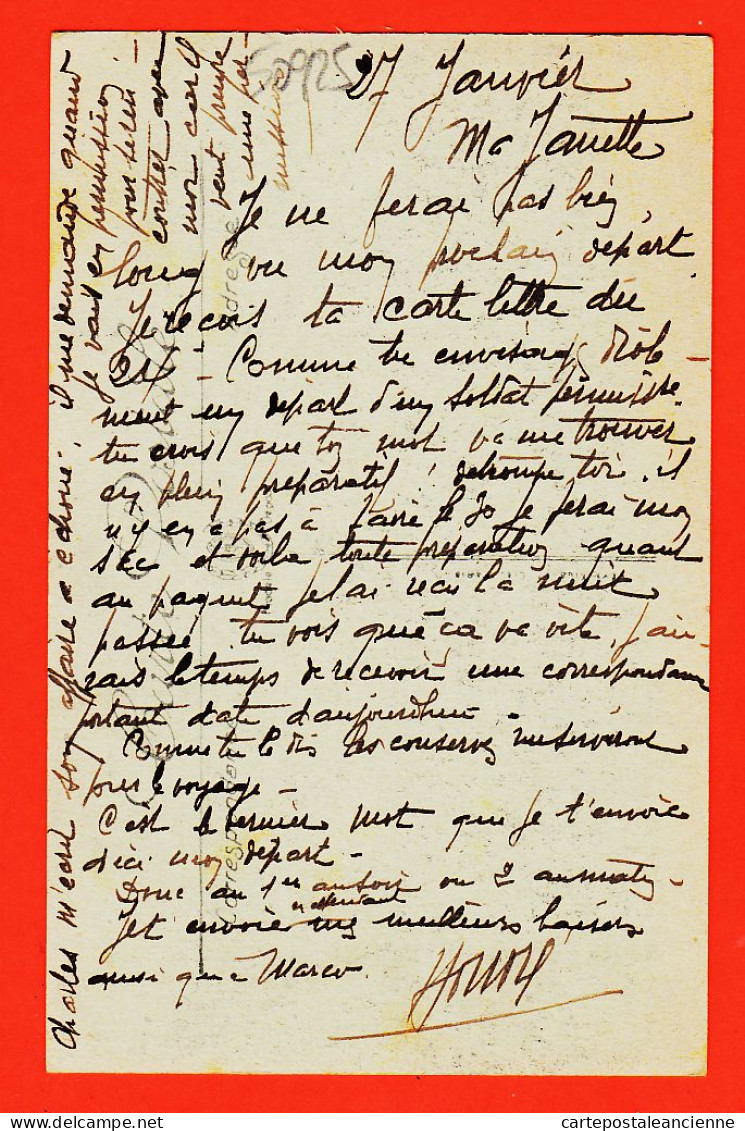 50925
27 Janvier
Ma Janette
Je ne ferai pas bien
long vu mon prochain départ
Je reçois ta carte lettre du
24 - Comme tu envisages drôle
ment un départ d'un soldat permission.
tu crois que ton mot va me trouver
en plein préparatif ! détrompe toi. il
n'y en a pas à faire le 30 je ferai mon
sac et voila toute préparation quant
au paquet je l'ai reçu la nuit
passée tu vois que ça va vite, j'au-
rais le temps de recevoir une correspondance
portant date d'aujourdhui -
Comme tu le dis les conserves me serviront
pour le voyage -
C'est le dernier mot que je t'envoie
d'ici mon départ -
Donc au 1er au soir ou 2 au matin -
en attendant
Je t'envoie mes meilleurs baisers
ainsi que a Marco
Charles m'écrit son affaire a échoué, il me demande quand
je vais en permission
contrer avec
mon car il
veut prendre
une per-
mission
Carte Postale
Correspondance
Adresse
cartepostaleancienne